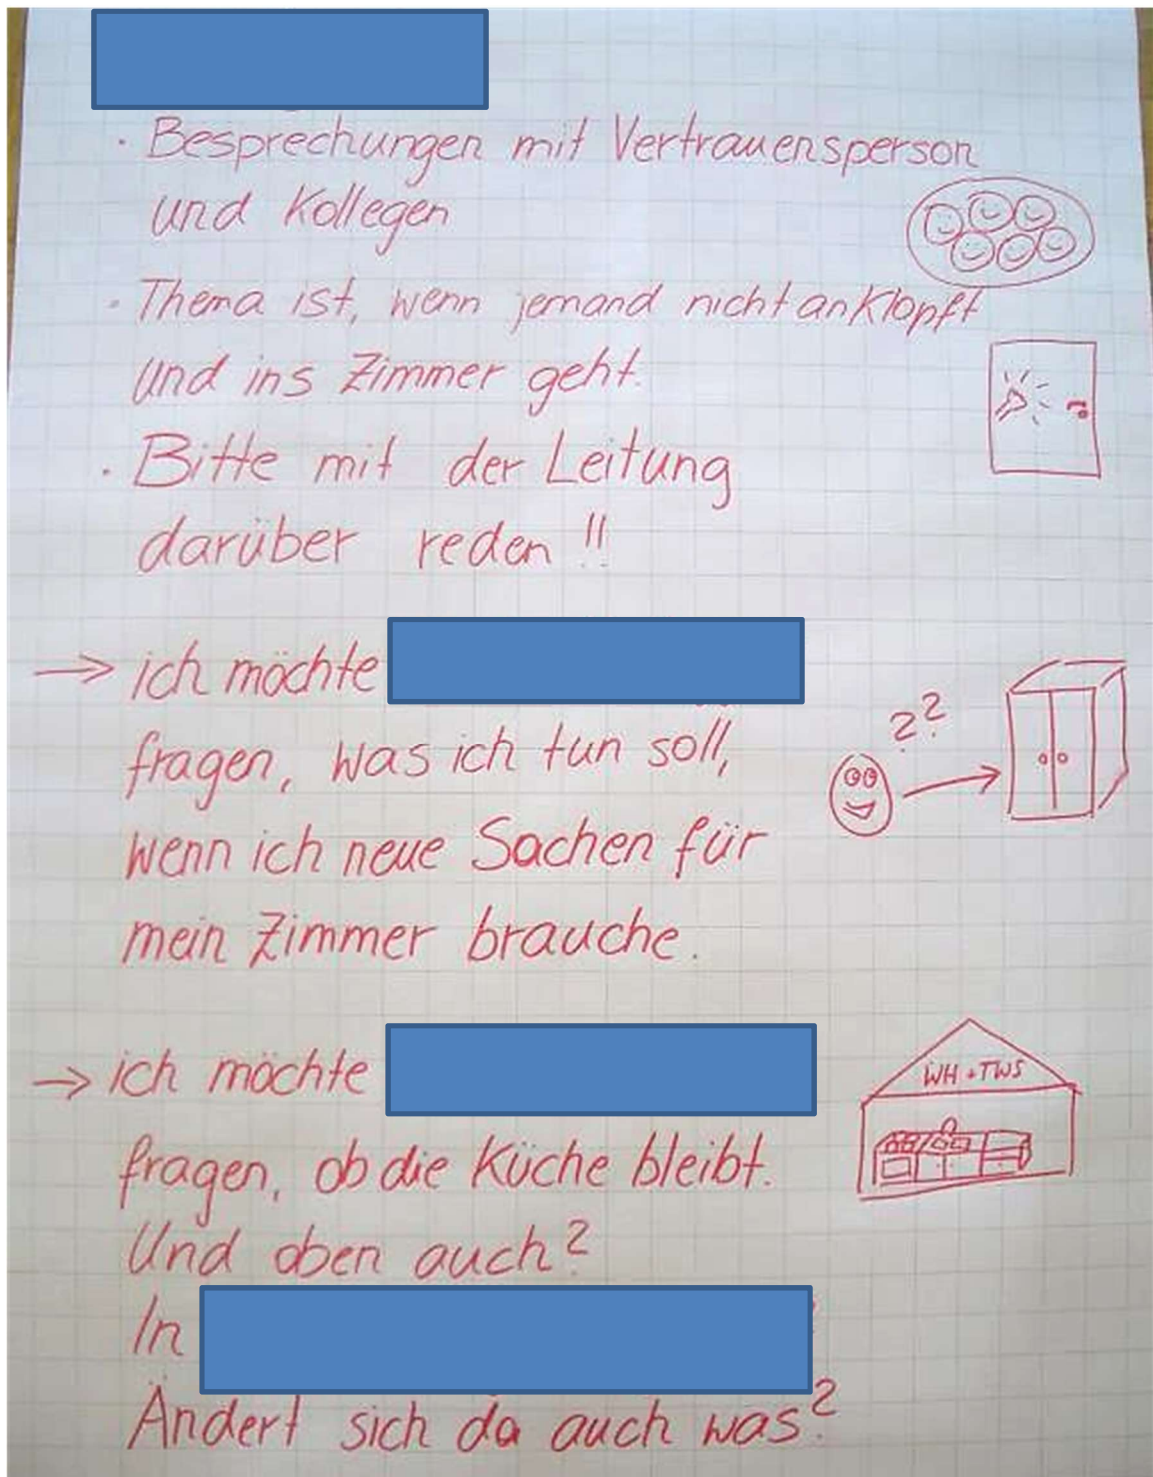 · Besprechungen mit Vertrauensperson
und Kollegen
· Thema ist, wenn jemand nicht anklopft
und ins Zimmer geht.
· Bitte mit der Leitung
darüber reden!!
→ ich möchte
fragen, was ich tun soll,
??
wenn ich neue Sachen für
mein Zimmer brauche.
→ ich möchte
WH + TWS
fragen, ob die Küche bleibt.
Und oben auch?
In
Ändert sich da auch was?